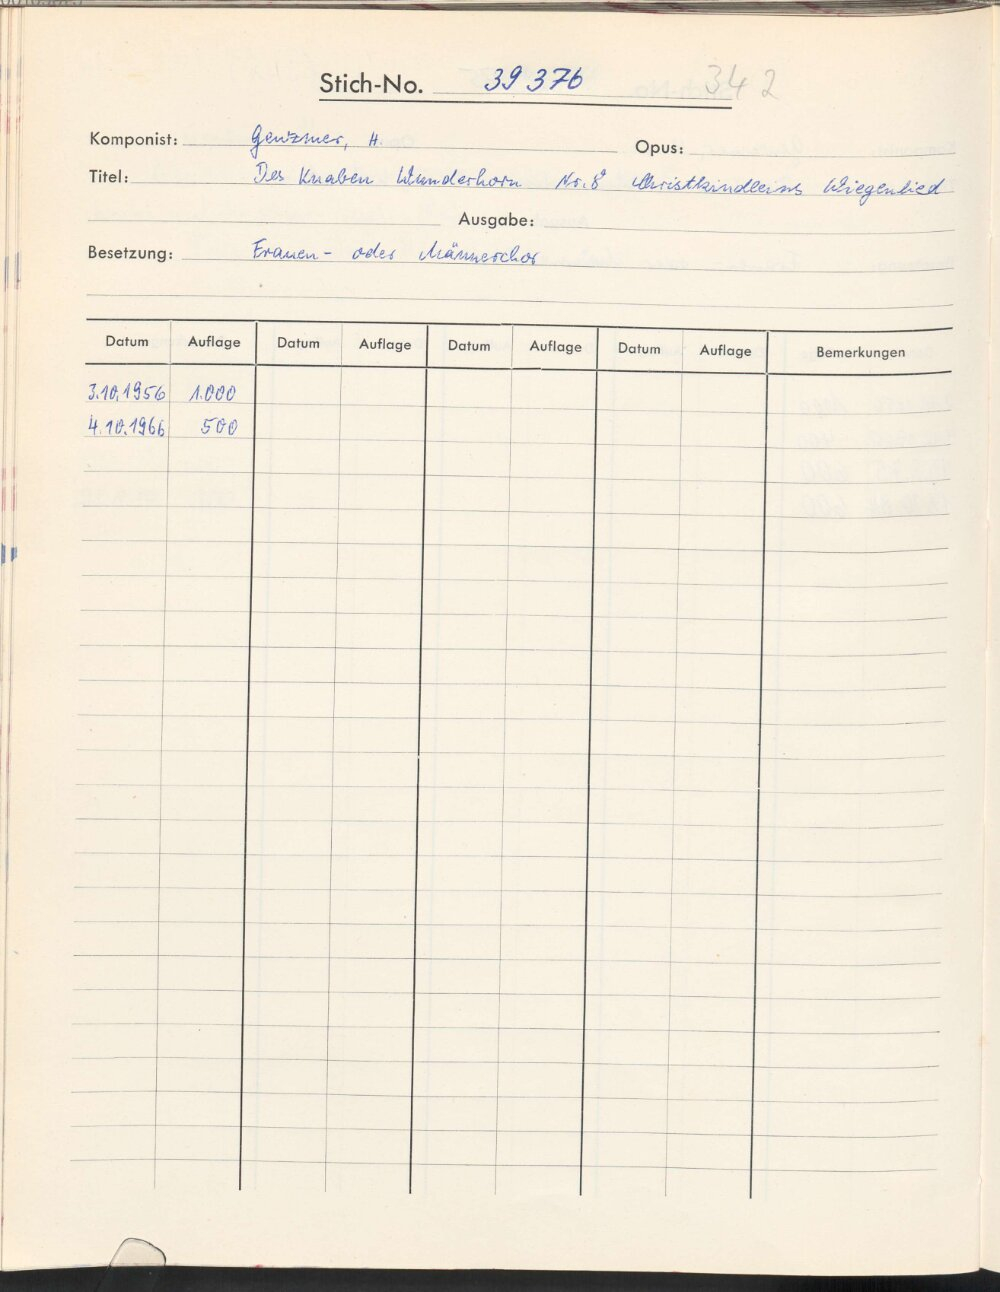 Stich-No. 39376 342
Komponist: Genzmer, H.
Opus:
Titel: Des Knaben Wunderhorn Nr. 8 Christkindleins Wiegenlied
Ausgabe:
Besetzung: Frauen- oder Männerchor
Datum Auflage Datum Auflage Datum Auflage Datum Auflage Bemerkungen
3.10.1956 1.000
4.10.1966 500